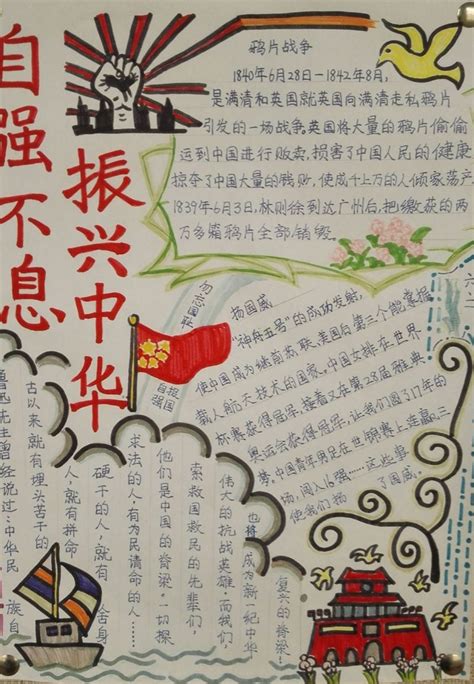 自强不息
振兴中华
鸦片战争
1840年6月28日—1842年8月,
是满清和英国就英国向满清走私鸦片
引发的一场战争英国将大量的鸦片偷偷
运到中国进行贩卖,损害了中国人民的健康
掠夺了中国大量的钱财,使成千上万的人倾家荡产
1839年6月3日,林则徐到达广州后,把缴获的两
万多箱鸦片全部销毁。
勿忘国耻
振国自强
扬国威
"神舟五号"的成功发射,
使中国成为继前苏联、美国的第三个能掌握
载人航天技术的国家.中国女排在世界
杯赛获得冠军,接着又在第28届雅典
奥运会获得冠军,让我们圆了17年的
梦。中国青年男足在世锦赛上连赢三
场,闯入16强……这些事
使我们扬了国威。
鲁迅先生曾经说过:中华民族自
古以来就有埋头苦干的
人,就有拼命
硬干的人,就有舍身
求法的人,有为民请命的人……
他们是中国的脊梁,一切探
索救国救民的先辈们,
伟大的抗战英雄.而我们,
也将成为新一纪中华
复兴的脊梁……